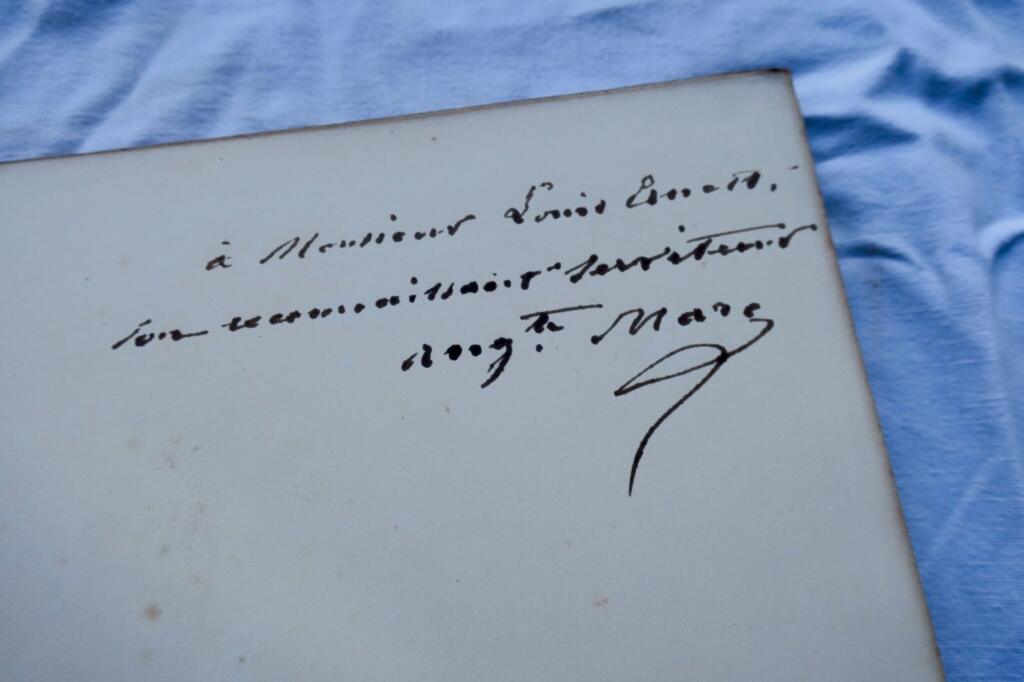 à Monsieur Louis Enault,
son reconnaissant serviteur
Aug.te Marc